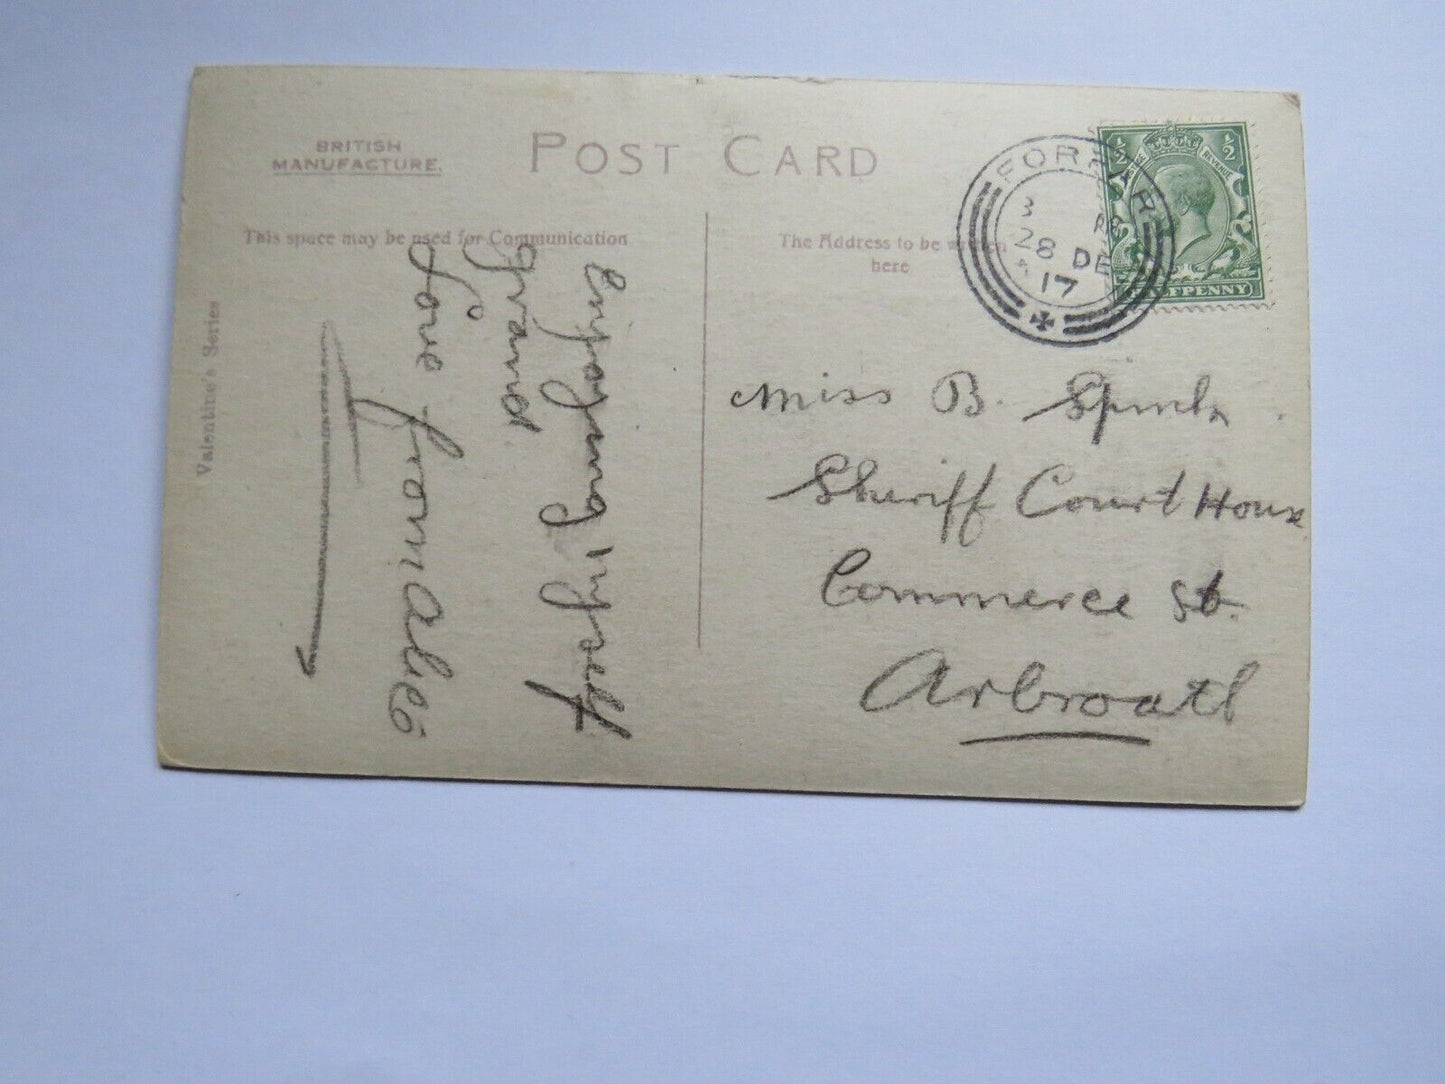 BRITISH
MANUFACTURE.
POST CARD
This space may be used for Communication
The Address to be written
here
Valentine's Series
FORFAR
3 PM
28 DE
17
½ ½
POSTAGE REVENUE
HALFPENNY
enjoying myself
grand.
Love from
Miss B.
Sheriff Court House
Commerce St.
Arbroath